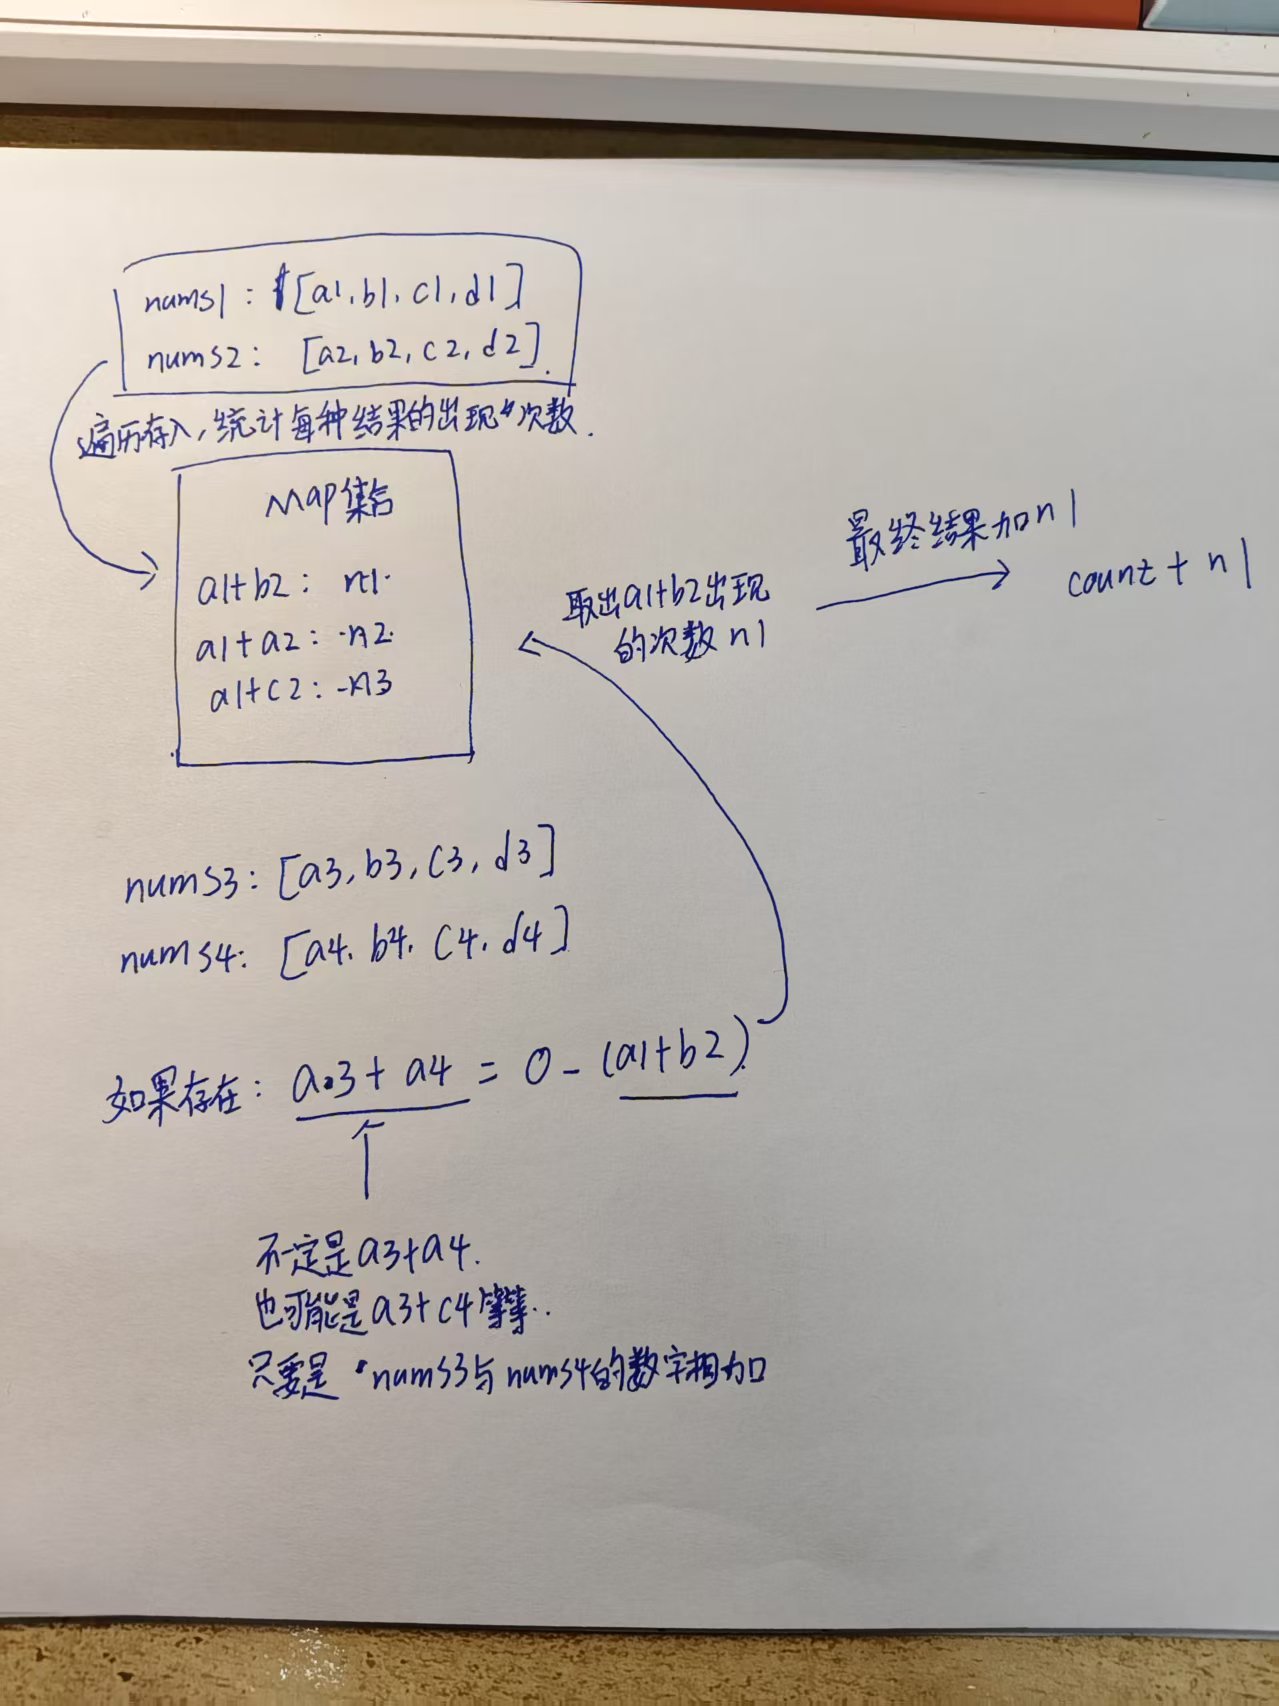 nums1: [a1,b1,c1,d1]
nums2: [a2,b2,c2,d2].
遍历存入,统计每种结果的出现次数.
Map集合
a1+b2: n1.
a1+a2: n2.
a1+c2: n3
取出a1+b2出现
的次数n1
最终结果加n1
count+n1
nums3: [a3,b3,c3,d3]
nums4: [a4,b4,c4,d4]
如果存在: a3+a4=0-(a1+b2).
不一定是a3+a4.
也可能是a3+c4等等..
只要是nums3与nums4的数字相加